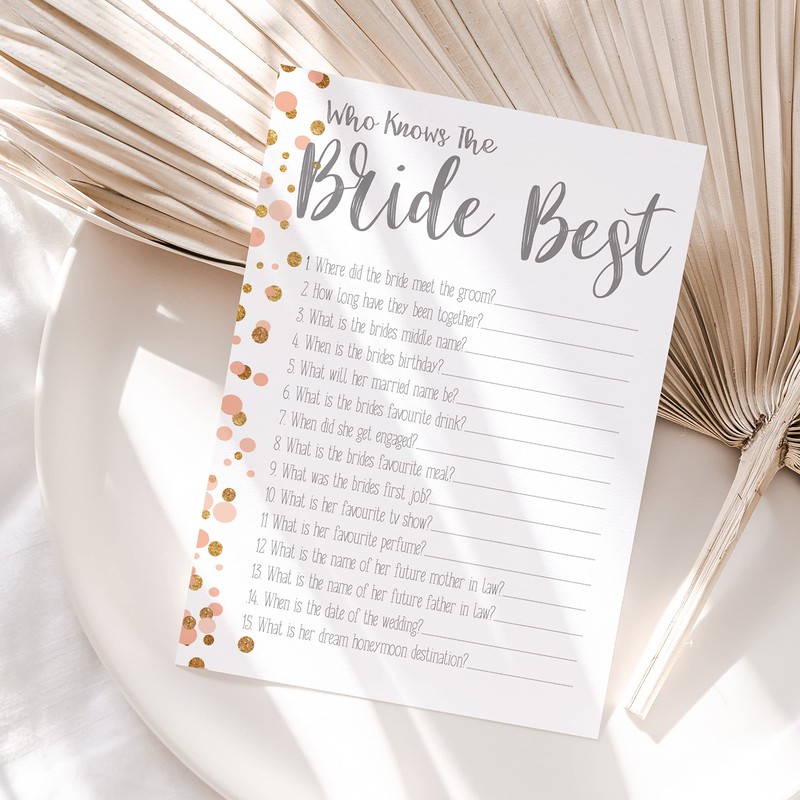 Who Knows The
Bride Best
1. Where did the bride meet the groom?
2. How long have they been together?
3. What is the brides middle name?
4. When is the brides birthday?
5. What will her married name be?
6. What is the brides favourite drink?
7. When did she get engaged?
8. What is the brides favourite meal?
9. What was the brides first job?
10. What is her favourite tv show?
11 What is her favourite perfume?
12 What is the name of her future mother in law?
13. What is the name of her future father in law?
14. When is the date of the wedding?
15. What is her dream honeymoon destination?